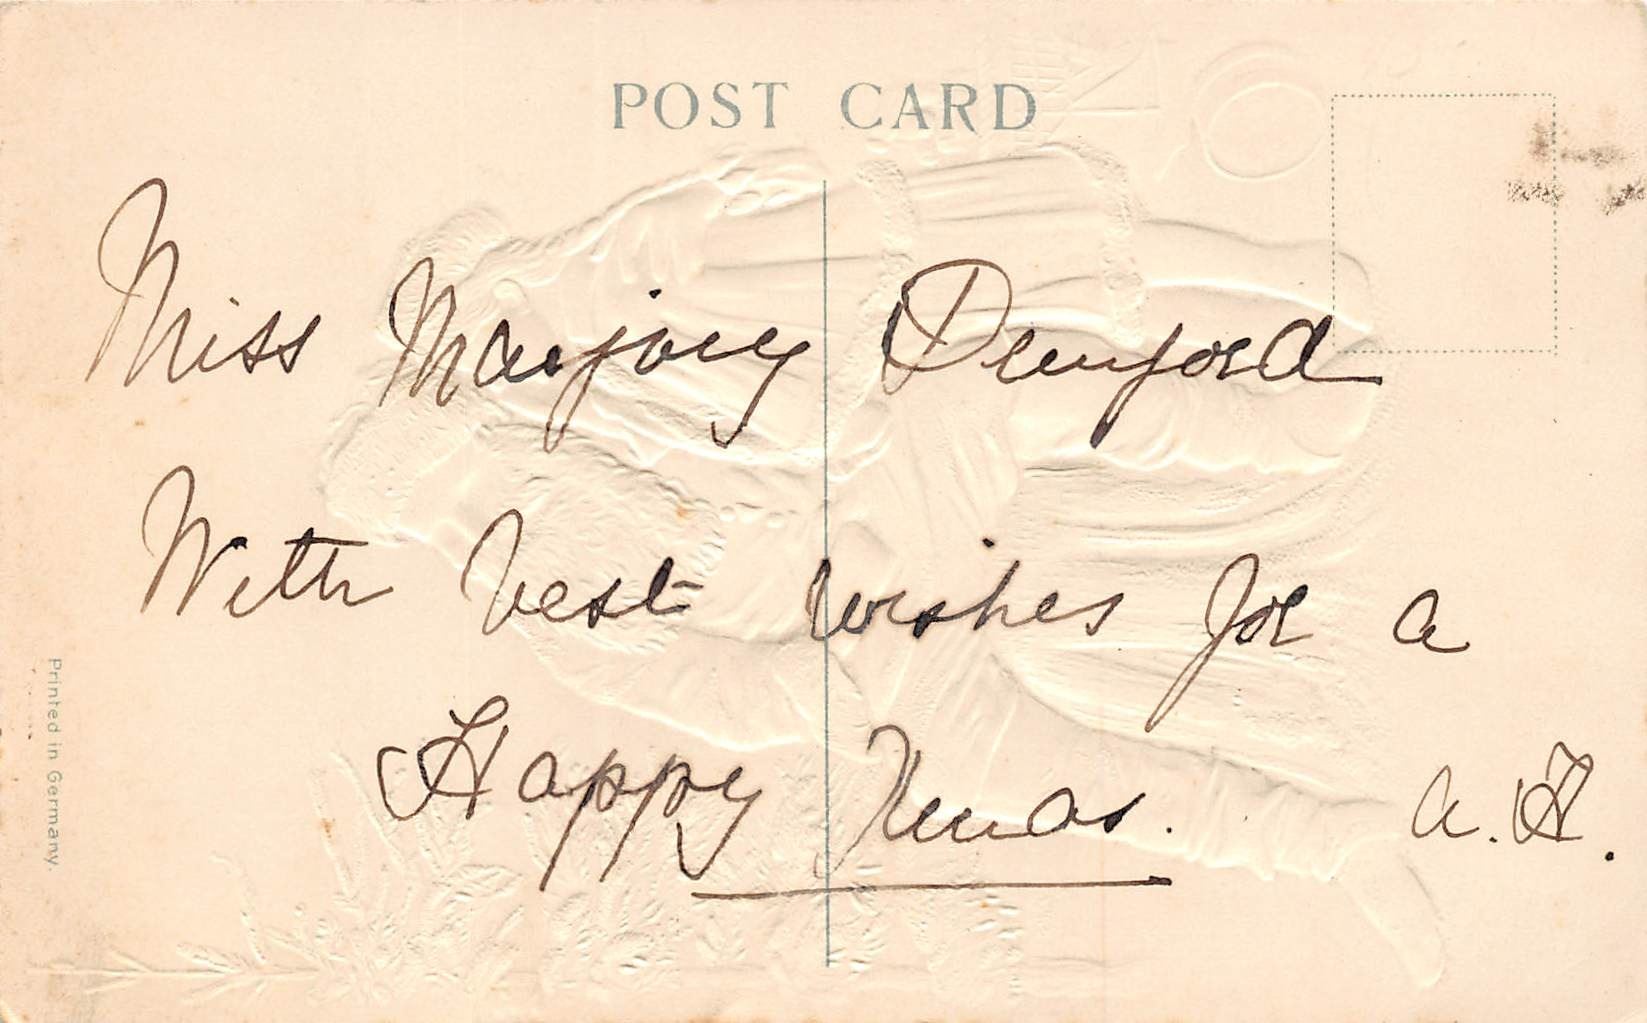 POST CARD
Miss Marjory Durnford
With best wishes for a
Happy Xmas. A. H.
Printed in Germany.